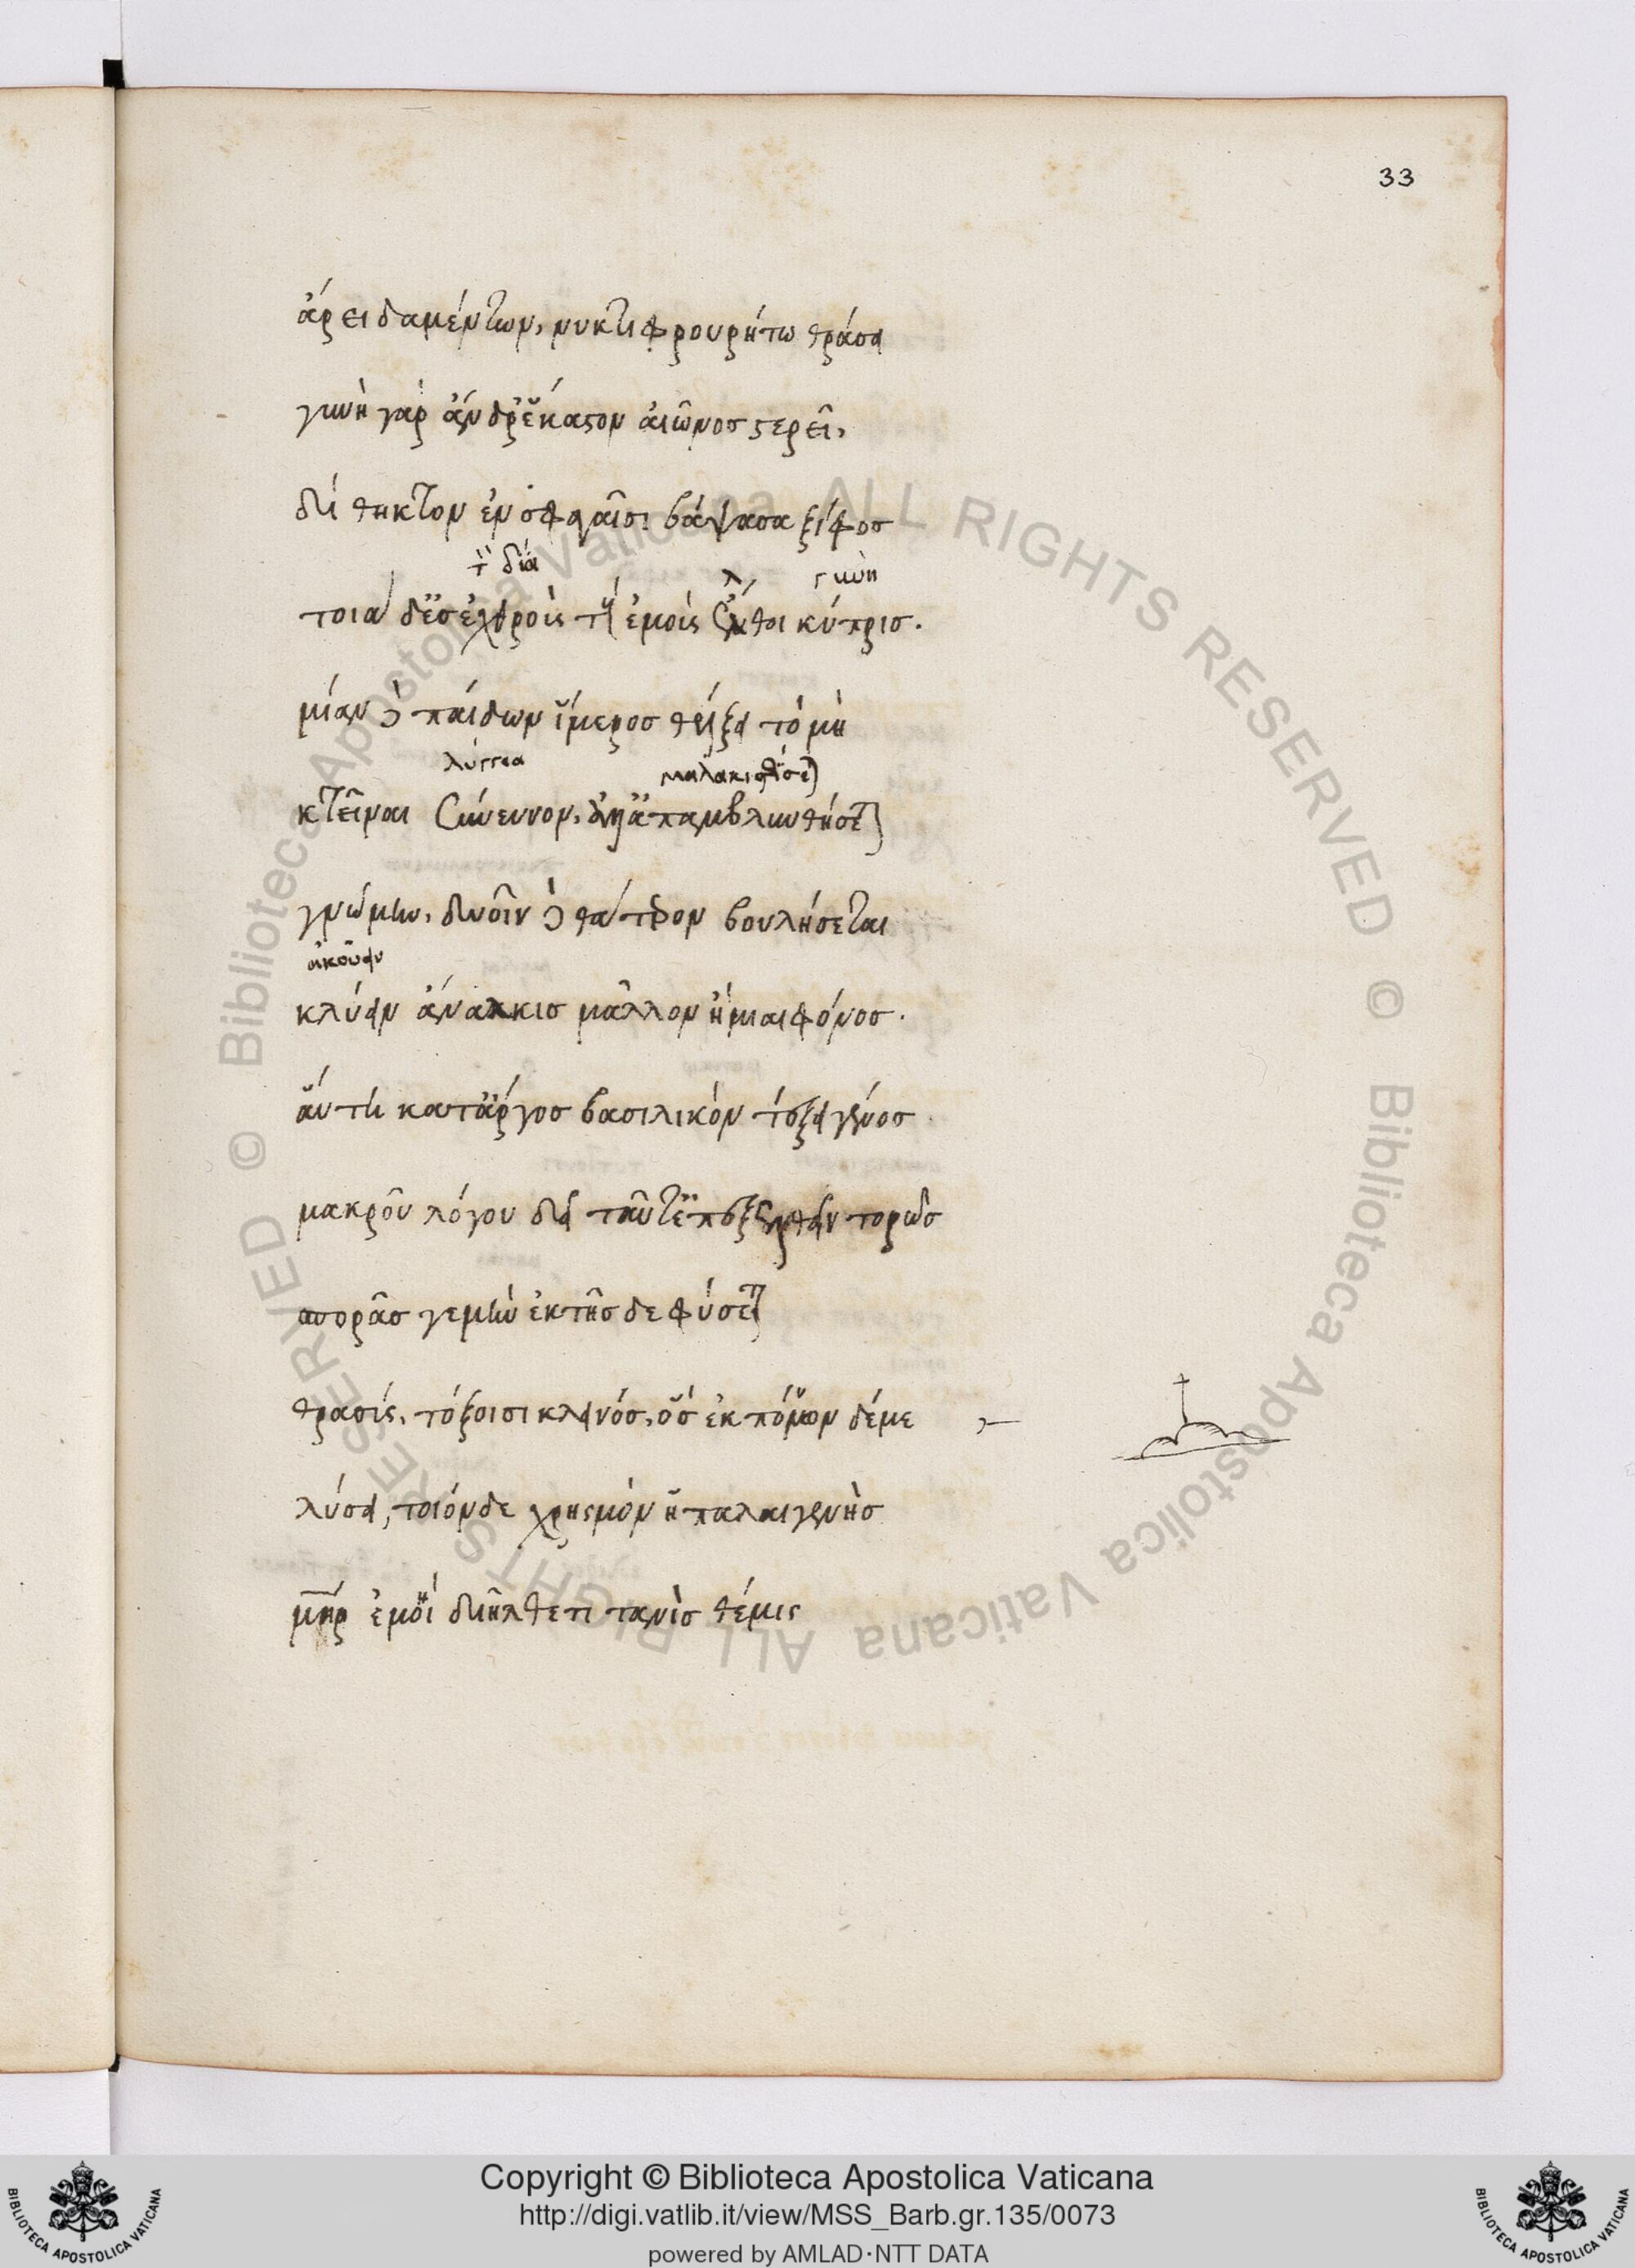 33
ἄρει δαμέντων, νυκτιφρουρήτω θράσει
γυνὴ γὰρ ἄνδρ' ἕκαστον αἰῶνος στερεῖ,
δί θηκτον ἐν σφαγαῖσι βάψασα ξίφος
ἤτοι διά
γυνὴ
τοιάδ' ἐς ἐχθροὺς τοὺς ἐμοὺς ἔλθοι κύπρις.
μίαν δὲ παίδων ἵμερος θέλξει τὸ μὴ
μαλακισθήσεται
κτεῖναι σύνευνον, ἀλλ' ἀπαμβλυνθήσεται
γνώμην, δυοῖν δὲ θάτερον βουλήσεται
ἀκούειν
κλύειν ἄναλκις μᾶλλον ἢ μιαιφόνος.
αὕτη κατ' ἄργος βασιλικὸν τέξει γένος
μακροῦ λόγου δεῖ ταῦτ' ἐπεξελθεῖν τορῶς
σπορᾶς γεμὴν ἐκ τῆσδε φύσεται
θρασύς, τόξοισι κλεινός, ὃς ἐκ πόνων δέμε
λύσει, τοιόνδε χρησμὸν ἡ παλαιγενὴς
μήτηρ ἐμοὶ διῆλθε τιτανὶς θέμις
Biblioteca Apostolica Vaticana ALL RIGHTS RESERVED ©
Biblioteca Apostolica Vaticana ALL RIGHTS RESERVED ©
Copyright © Biblioteca Apostolica Vaticana
http://digi.vatlib.it/view/MSS_Barb.gr.135/0073
powered by AMLAD·NTT DATA
BIBLIOTECA APOSTOLICA VATICANA
BIBLIOTECA APOSTOLICA VATICANA